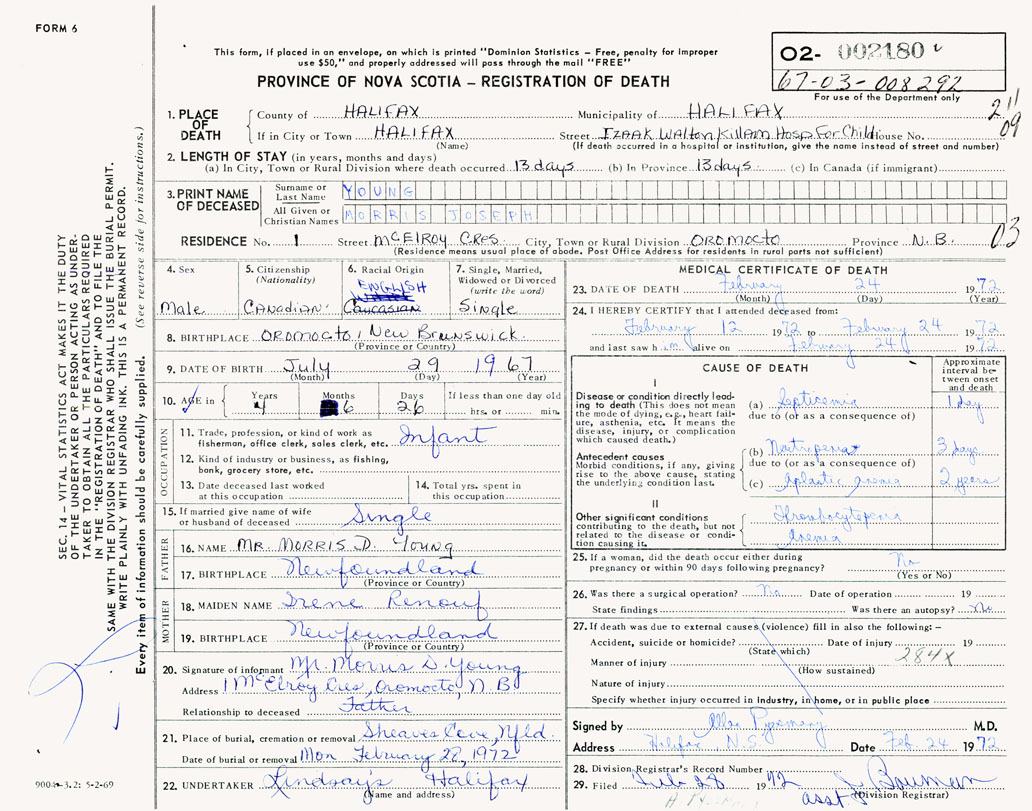 FORM 6
This form, if placed in an envelope, on which is printed "Dominion Statistics – Free, penalty for improper
use $50," and properly addressed will pass through the mail "FREE"
PROVINCE OF NOVA SCOTIA – REGISTRATION OF DEATH
02- 002180
67-03-008292
For use of the Department only
2 11
09
1. PLACE OF DEATH
County of HALIFAX Municipality of HALIFAX
If in City or Town HALIFAX Street IZAAK Walton Killam Hosp For Child House No.
(Name) (If death occurred in a hospital or institution, give the name instead of street and number)
2. LENGTH OF STAY (in years, months and days)
(a) In City, Town or Rural Division where death occurred 13 days (b) In Province 13 days (c) In Canada (if immigrant)
3. PRINT NAME OF DECEASED
Surname or Last Name YOUNG
All Given or Christian Names MORRIS JOSEPH
RESIDENCE No. 1 Street McElroy Cres. City, Town or Rural Division OROMOCTO Province N.B. 03
(Residence means usual place of abode. Post Office Address for residents in rural parts not sufficient)
4. Sex
Male
5. Citizenship (Nationality)
CANADIAN
6. Racial Origin
ENGLISH
Caucasian
7. Single, Married, Widowed or Divorced (write the word)
Single
8. BIRTHPLACE OROMOCTO, New Brunswick
(Province or Country)
9. DATE OF BIRTH July 29 1967
(Month) (Day) (Year)
10. AGE in Years 4 Months 6 Days 26 If less than one day old hrs. or min.
OCCUPATION
11. Trade, profession, or kind of work as fisherman, office clerk, sales clerk, etc. Infant
12. Kind of industry or business, as fishing, bank, grocery store, etc.
13. Date deceased last worked at this occupation
14. Total yrs. spent in this occupation
15. If married give name of wife or husband of deceased Single
FATHER
16. NAME MR. MORRIS D. Young
17. BIRTHPLACE Newfoundland
(Province or Country)
MOTHER
18. MAIDEN NAME Irene Renouf
19. BIRTHPLACE Newfoundland
(Province or Country)
20. Signature of informant Mr. Morris D. Young
Address 1 McElroy Cres, Oromocto, N.B
Relationship to deceased Father
21. Place of burial, cremation or removal Sheaves Cove, Nfld.
Date of burial or removal Mon February 28, 1972
22. UNDERTAKER Lindsay's Halifax
(Name and address)
MEDICAL CERTIFICATE OF DEATH
23. DATE OF DEATH February 24 1972
(Month) (Day) (Year)
24. I HEREBY CERTIFY that I attended deceased from:
February 12 1972 to February 24 1972
and last saw him alive on February 24 1972
CAUSE OF DEATH
Approximate interval between onset and death
I
Disease or condition directly leading to death (This does not mean the mode of dying, e.g., heart failure, asthenia, etc. It means the disease, injury, or complication which caused death.)
(a) Septicemia 1 day
due to (or as a consequence of)
Antecedent causes
Morbid conditions, if any, giving rise to the above cause, stating the underlying condition last.
(b) 3 days
due to (or as a consequence of)
(c) Aplastic anemia 2 years
II
Other significant conditions contributing to the death, but not related to the disease or condition causing it.
Thrombocytopenia
Anemia
25. If a woman, did the death occur either during pregnancy or within 90 days following pregnancy? No
(Yes or No)
26. Was there a surgical operation? No Date of operation 19
State findings Was there an autopsy? No
27. If death was due to external causes (violence) fill in also the following: –
Accident, suicide or homicide? Date of injury 19
(State which)
284X
Manner of injury
(How sustained)
Nature of injury
Specify whether injury occurred in industry, in home, or in public place
Signed by M.D.
Address Halifax N.S. Date Feb. 24 1972
28. Division Registrar's Record Number
29. Filed Feb 28 1972 Bowman
asst (Division Registrar)
SEC. 14 – VITAL STATISTICS ACT MAKES IT THE DUTY
OF THE UNDERTAKER OR PERSON ACTING AS UNDER-
TAKER TO OBTAIN ALL THE PARTICULARS REQUIRED
IN THE "REGISTRATION OF DEATH" AND TO FILE THE
SAME WITH THE DIVISION REGISTRAR WHO SHALL ISSUE THE BURIAL PERMIT.
WRITE PLAINLY WITH UNFADING INK. THIS IS A PERMANENT RECORD.
Every item of information should be carefully supplied. (See reverse side for instructions.)
900 3.2: 5-2-69